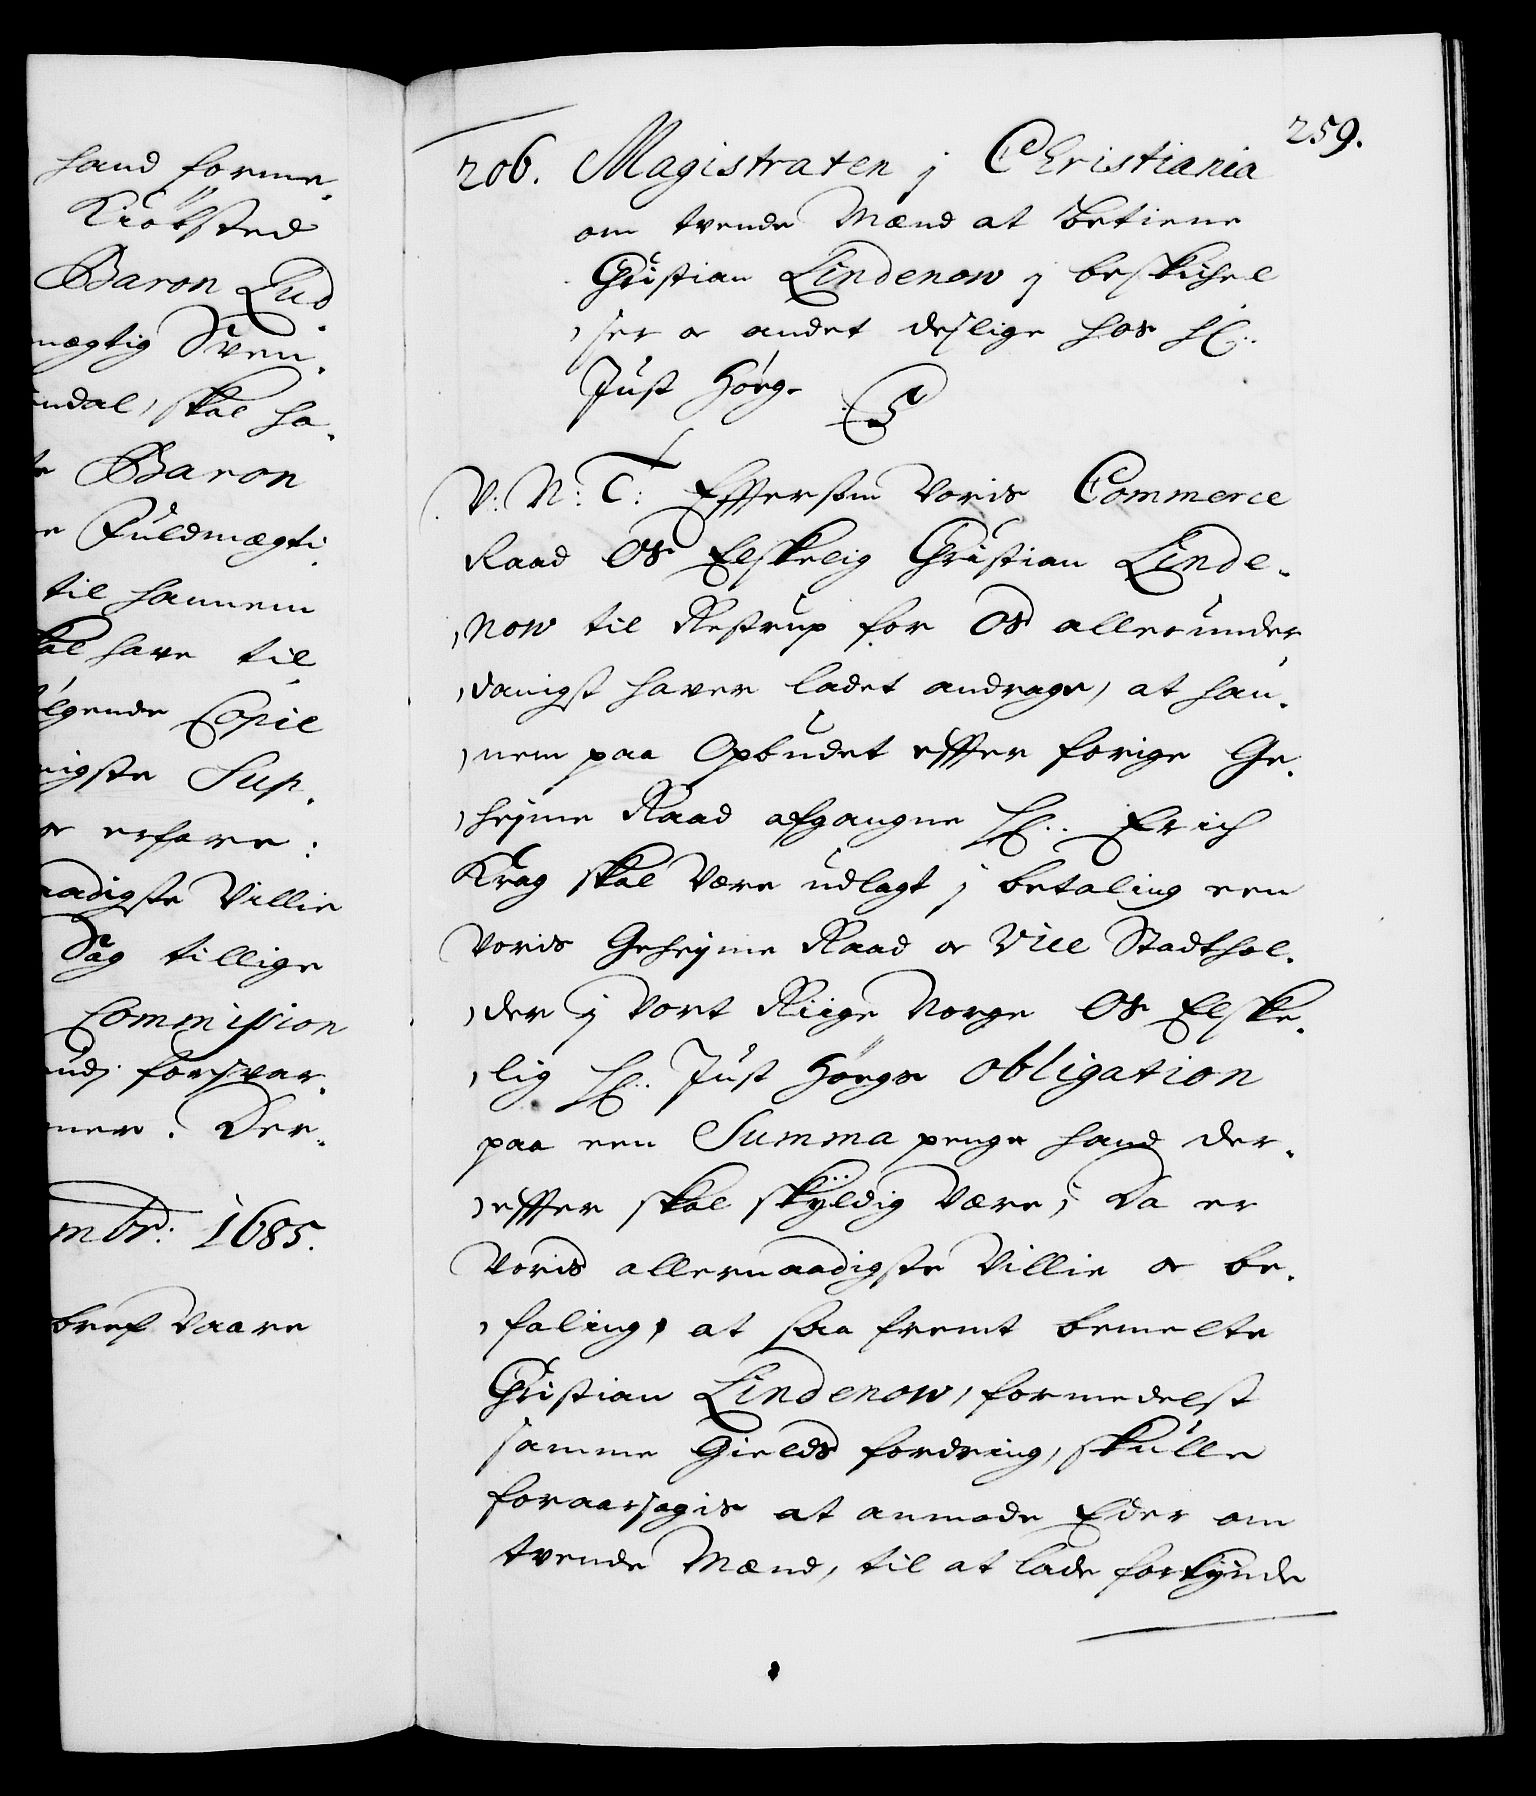 hand forme-
Kiöbsted
Baron Lud
mægtig Sven.
indal, skal ha-
Baron
Fuldmægti
til hannem
skal have til
ølgende Copie
nigste Sup.
oc erfare:
naadigste Villie
Sag tillige
Commission
forsvar.
mer. Der-
mbr: 1685.
bref vaare
259.
206. Magistraten j Christiania
om tvende Mænd at betiene
Christian Lindenow j beskichel
ser oc andet deslige hos H.
Just Høeg.
V: N: T: Effersom Voris Commerce
Raad Os Elskelig Christian Linde-
now til Restrup for Os allerunder
danigst haver ladet andrage, at han-
nem paa Opbudet effter forige Ge-
hejme Raad afgangne H. Erich
Krag skal være udlagt j betaling een
Voris Gehejme Raad oc Vice Stadthol-
der j Vort Riige Norge Os Elske-
lig H. Just Høegs Obligation
paa een Summa penge hand der-
effter skal skÿldig være; Da er
Voris allernaadigste Villie oc be-
faling, at saa fremt bemelte
Christian Lindenow, formedelst
samme Gields fordring, skulle
foraarsagis at anmode Eder om
tvende Mænd, til at lade forkÿnde